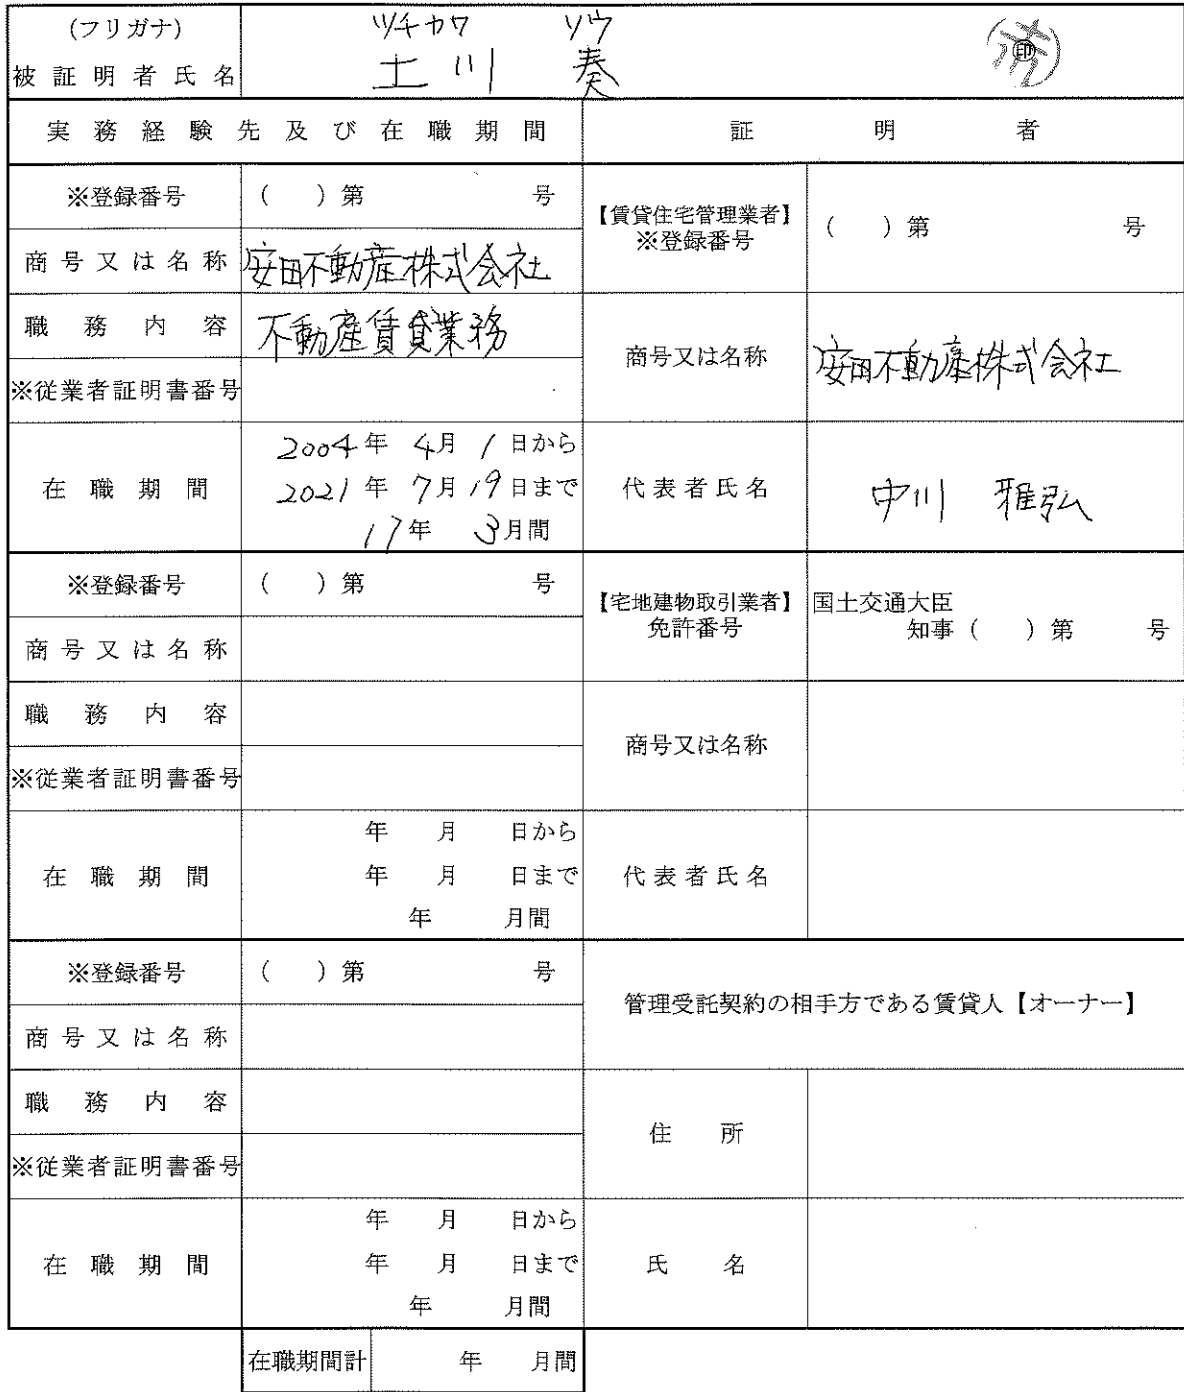 (フリガナ) ツチカワ ソウ
被証明者氏名 土川 奏 印
実務経験先及び在職期間 証明者
※登録番号 ( )第 号
【賃貸住宅管理業者】
※登録番号 ( )第 号
商号又は名称 安田不動産株式会社
職務内容 不動産賃貸業務
商号又は名称 安田不動産株式会社
※従業者証明書番号
在職期間
2004年 4月 1日から
2021年 7月 19日まで
17年 3月間
代表者氏名 中川 雅弘
※登録番号 ( )第 号
【宅地建物取引業者】
免許番号
国土交通大臣
知事( )第 号
商号又は名称
職務内容
商号又は名称
※従業者証明書番号
在職期間
年 月 日から
年 月 日まで
年 月間
代表者氏名
※登録番号 ( )第 号
管理受託契約の相手方である賃貸人【オーナー】
商号又は名称
職務内容
住所
※従業者証明書番号
在職期間
年 月 日から
年 月 日まで
年 月間
氏名
在職期間計 年 月間